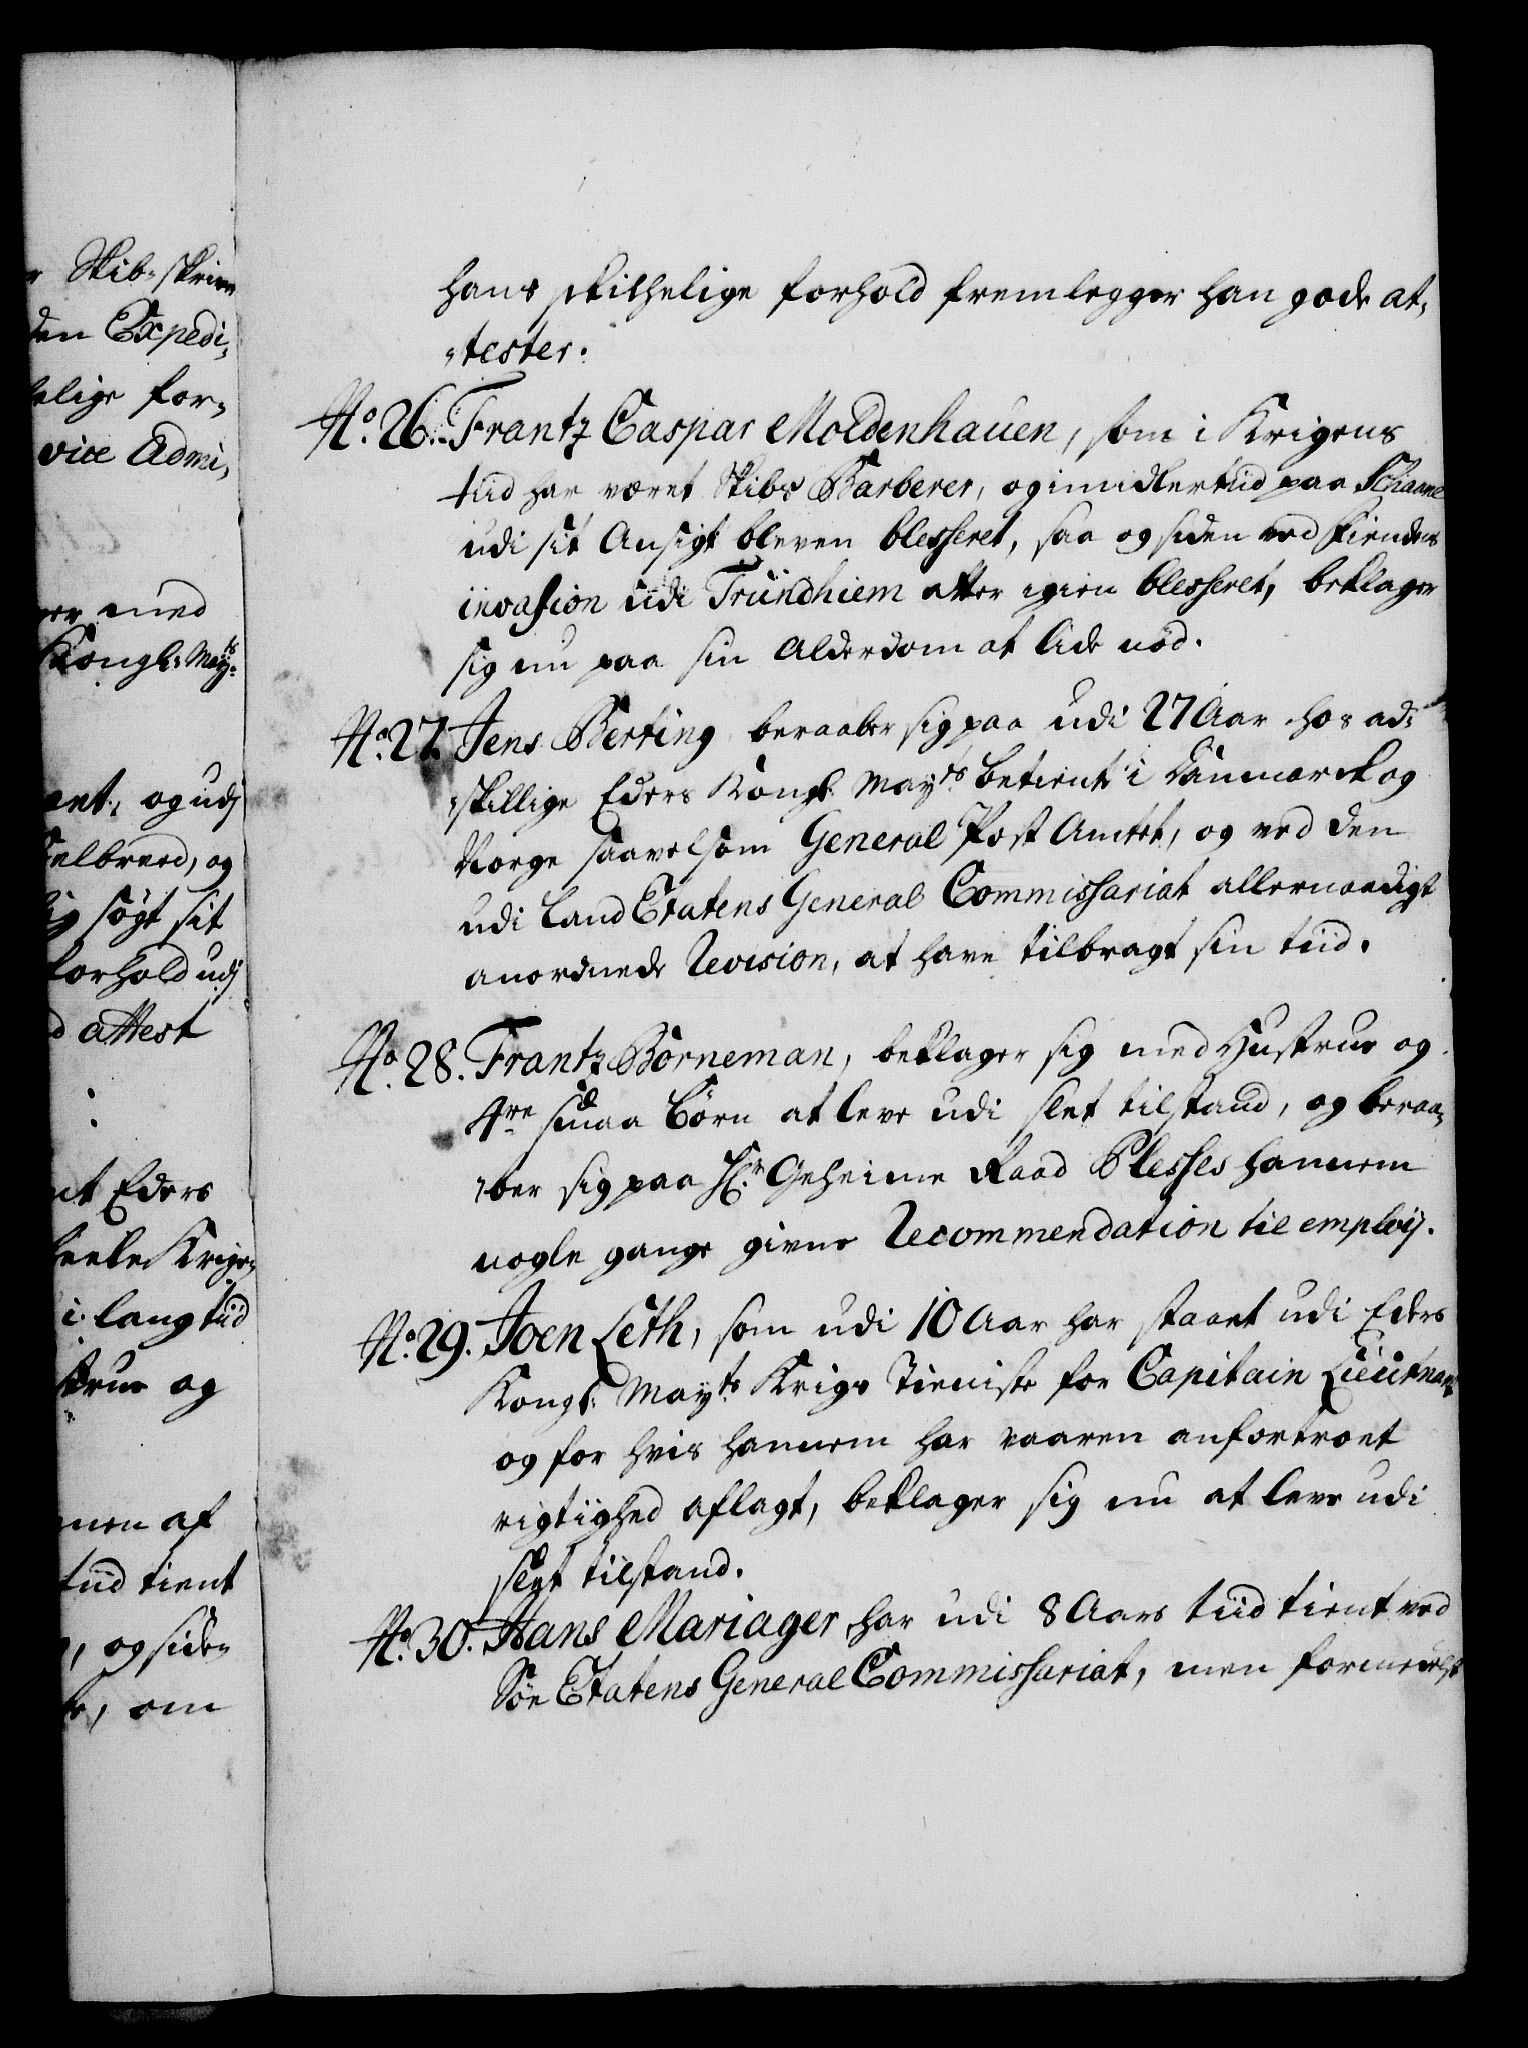 r Skib-skriver
den Expedi-
elige for-
vice Admi-
er med
Kongl: Mayts:
ent, og udj
elbreed, og
ig søgt sit
forhold udj
d attest
nt Eders
heele Kriges
i lang tiid
strue og
men af
tiid tient
, og siden
, om
hans skichelige forhold fremlegger han gode at-
-tester.
No. 26. Frantz Caspar Moldenhauen, som i Krigens
tiid har været Skibs Barberer, og imidlertiid paa Schaane
udi sit Ansigt bleven blesseret, saa og siden ved Fiendens
invasion udi Trundhiem atter igien blesseret, beklager
sig nu paa sin Alderdom at lide nød.
No. 27. Jens Berting beraaber sig paa udi 27 Aar hos ad-
-skillige Eders Kongl. Mayts betiente i Danmarck og
Norge saavelsom General Post Amtet, og ved den
udi Land Etatens General Commissariat allernaadigst
anordnede Revision, at have tilbragt sin tiid.
No. 28. Frantz Borneman, beklager sig med Hustrue og
4re smaa Børn at leve udi slet tilstand, og beraa-
-ber sig paa Hr. Geheime Raad Plesses hannem
nogle gange givne Recommendation til employ.
No. 29. Joen Leth, som udi 10 Aar har staaet udi Eders
Kongl. Mayts Krigs Tieniste for Capitain Lieutnant
og for hvis hannem har vaaren anfortroet
rigtighed aflagt, beklager sig nu at leve udi
slet tilstand.
No. 30. Hans Mariager har udi 8 Aars tiid tient ved
Søe Etatens General Commissariat, men formedelst